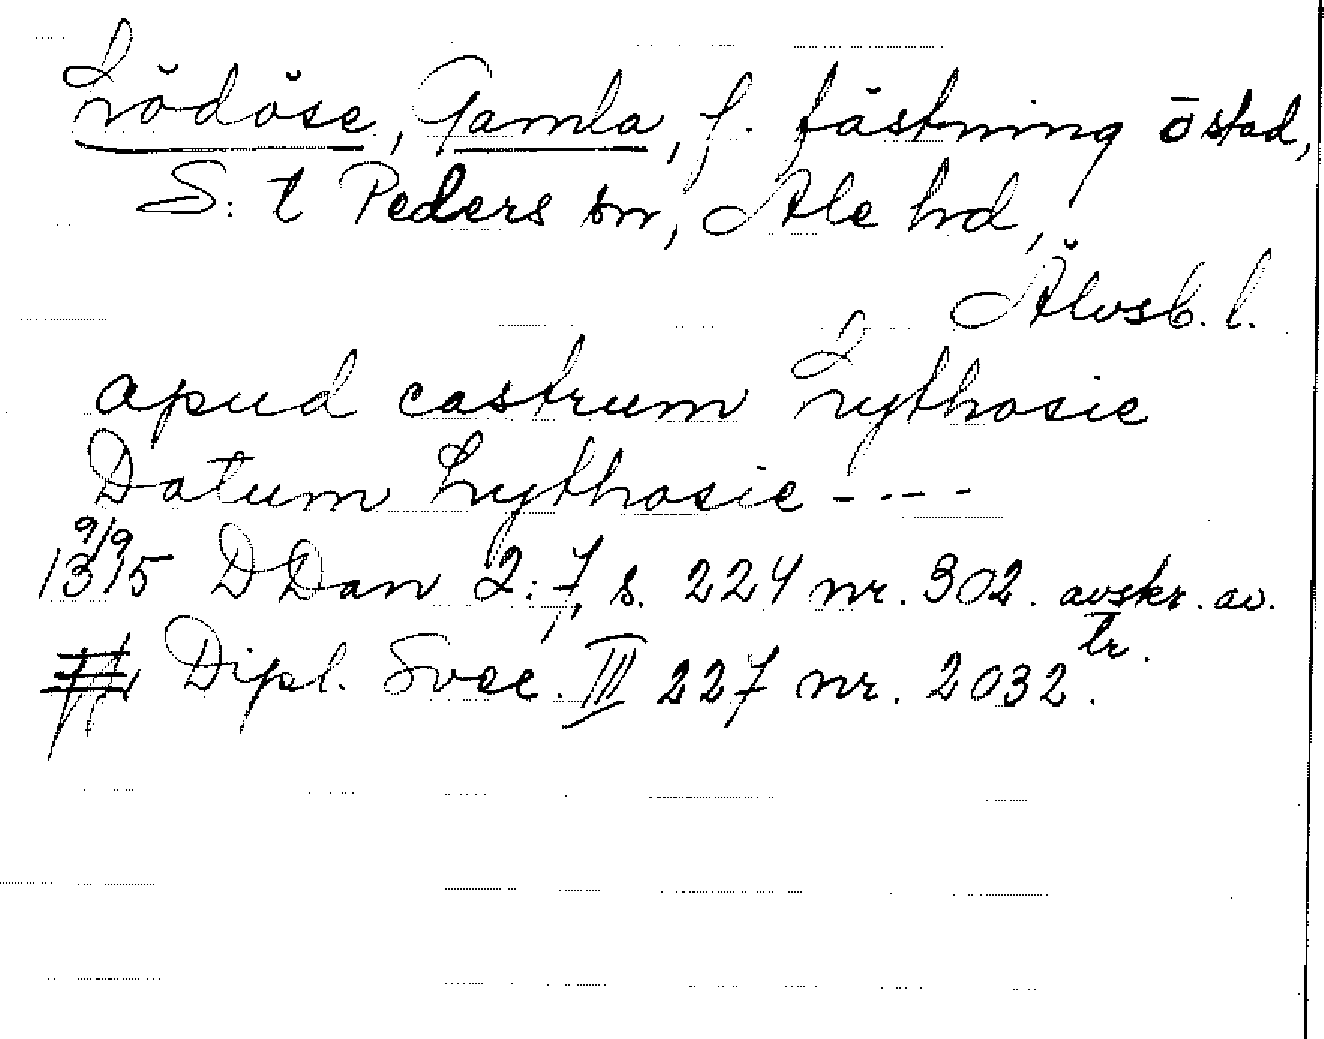 Lödöse, Gamla, f. fästning o stad,
S:t Peders sn, Ale hd,
Älvsb. l.
apud castrum Lythosie
Datum Lythosie - - - -
9/9
1315 DDan 2:7, s. 224 nr. 302. avskr. av
tr.
Dipl. Svec. III 227 nr. 2032.